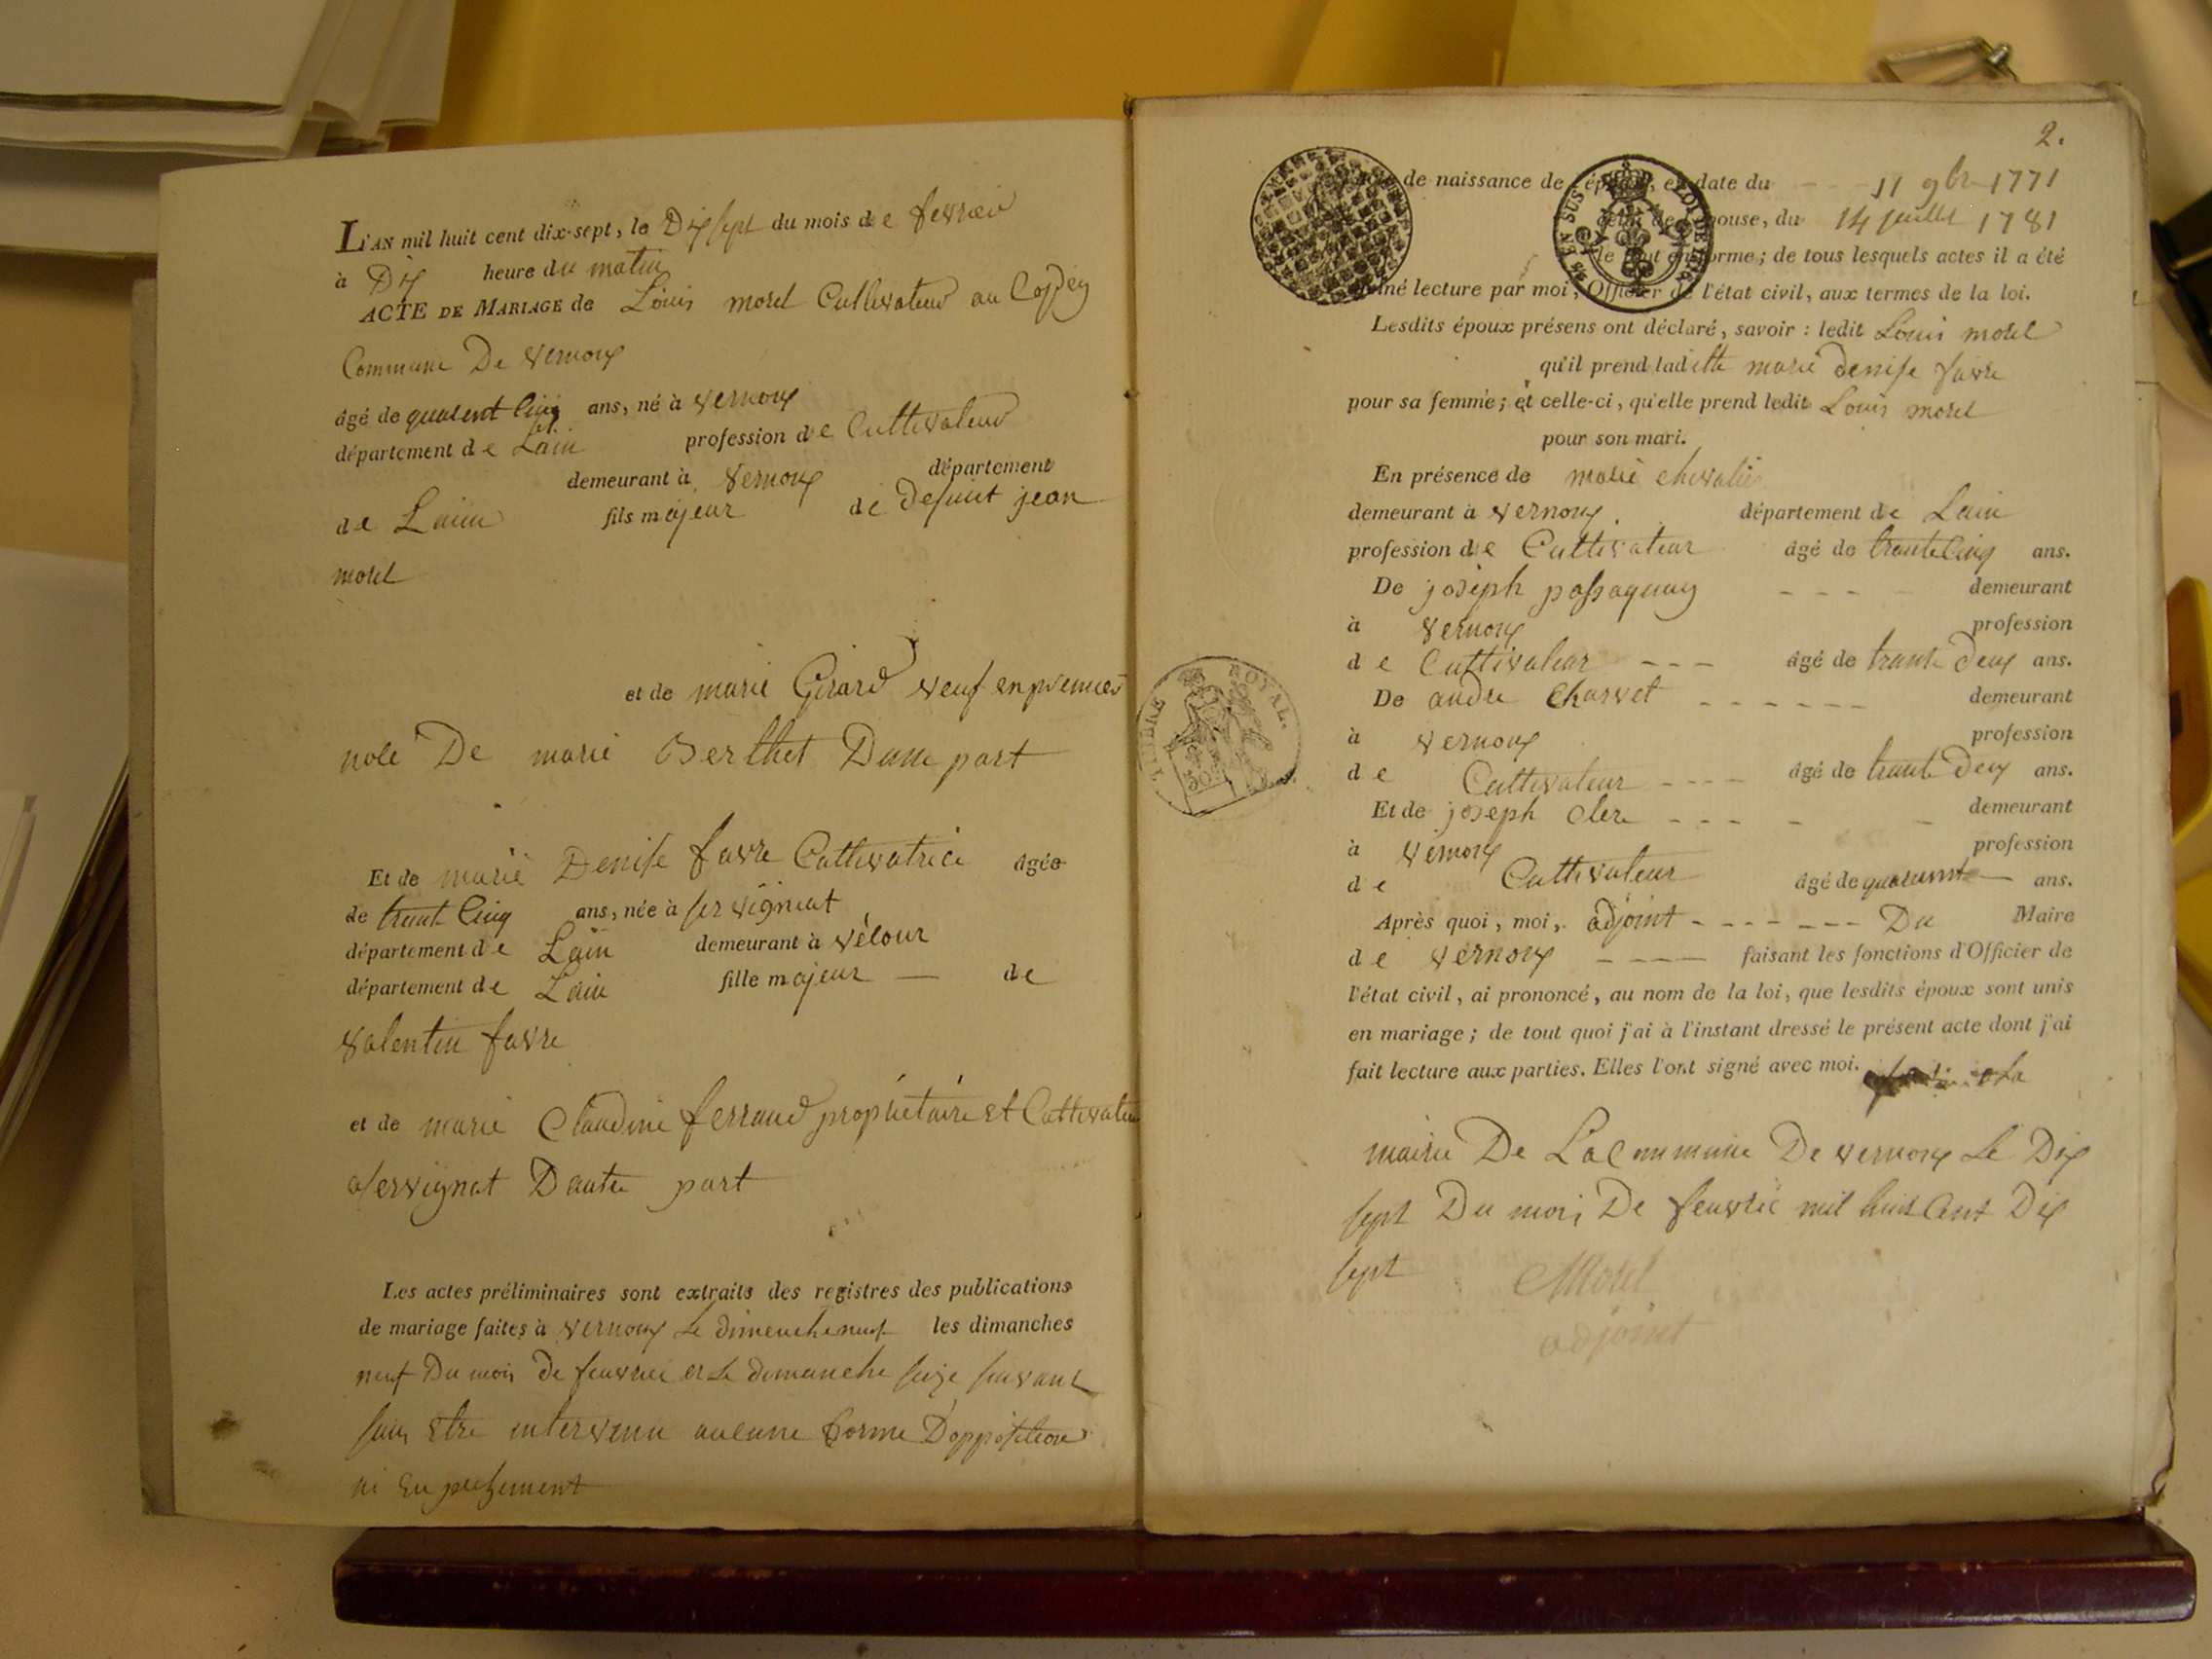 L'AN mil huit cent dix-sept, le Dix sept du mois de fevrier
à Dix heure du matin
ACTE DE MARIAGE de Louis morel Cultivateur au
Commune De vernoux
âgé de quarent Cinq ans, né à vernoux
département de Lain profession de Cultivateur
demeurant à vernoux département
de Lain fils majeur de defunt jean
morel
et de marie Girard veuf en premier
noce De marie Berthet Dune part
Et de marie Denise favre Cultivatrice âgée
de trente Cinq ans, née à servignat
département de Lain demeurant à vélour
département de Lain fille majeur — de
valentin favre
et de marie Claudine ferrand propriétaire et Cultivateur
a servignat Dautre part
Les actes préliminaires sont extraits des registres des publications
de mariage faites à vernoux Le dimenche neuf les dimanches
neuf Du mois de feuvrier et Le dimanche seize suivant
sans Etre intervenu aucune forme D'opposition
ni
2.
de naissance de époux, en date du - - - 11 9bre 1771
celui de l'épouse, du 14 juillet 1781
le tout en forme; de tous lesquels actes il a été
donné lecture par moi, Officier de l'état civil, aux termes de la loi.
Lesdits époux présens ont déclaré, savoir : ledit Louis morel
qu'il prend ladite marie denise favre
pour sa femme; et celle-ci, qu'elle prend ledit Louis morel
pour son mari.
En présence de marie chevalier
demeurant à vernoux département de Lain
profession de Cultivateur âgé de trente Cinq ans.
De joseph passaquay - - - - demeurant
à vernoux profession
de Cultivateur - - - âgé de trente Deux ans.
De andre Charvet - - - - - - demeurant
à vernoux profession
de Cultivateur - - - - âgé de trente Deux ans.
Et de joseph Clere - - - - - demeurant
à vernoux profession
de Cultivateur âgé de quarante — ans.
Après quoi, moi, adjoint - - - - - - - Du Maire
de vernoux - - - - faisant les fonctions d'Officier de
l'état civil, ai prononcé, au nom de la loi, que lesdits époux sont unis
en mariage; de tout quoi j'ai à l'instant dressé le présent acte dont j'ai
fait lecture aux parties. Elles l'ont signé avec moi. a La
mairie De La Commune De vernoux Le Dix
sept Du mois De feuvrie mil huit Cent Dix
sept Morel
adjoint
TIMBRE ROYAL.
50
EN SUS
LOI DE